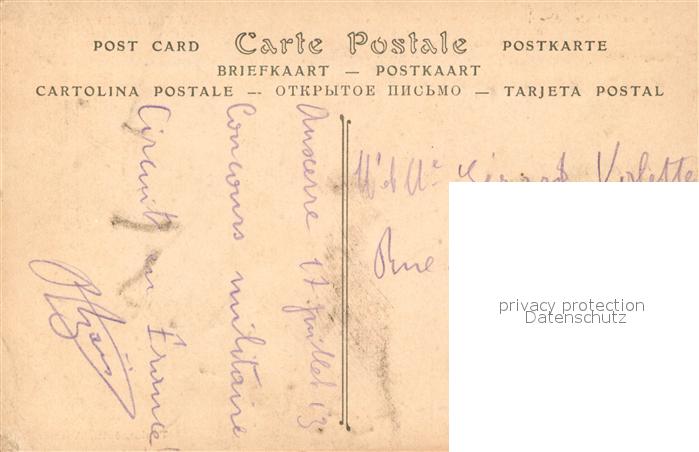 POST CARD Carte Postale POSTKARTE
BRIEFKAART — POSTKAART
CARTOLINA POSTALE — ОТКРЫТОЕ ПИСЬМО — TARJETA POSTAL
Auxerre 17 juillet 13
Concours militaire
Circuit en France
Mr et Me Gérard Violette
Rue
privacy protection
Datenschutz